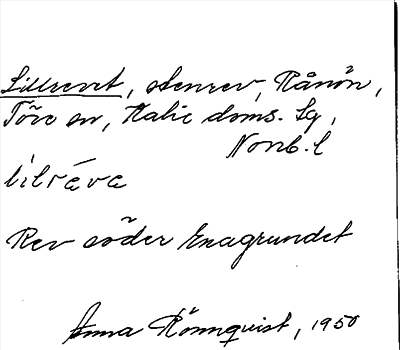 Lillrevet, stenrev, Rånön,
Töre sn, Kalix doms. Lg,
Norrb. l
lìlrǽva
Rev söder Enagrundet
Anna Rönnqvist, 1950